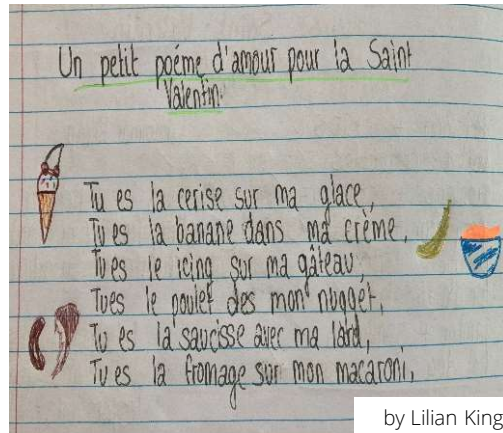 Un petit poéme d'amour pour la Saint
Valentin.
Tu es la cerise sur ma glace,
Tu es la banane dans ma crème,
Tu es le icing sur ma gâteau,
Tu es le poulet des mon nuggét,
Tu es la saucisse avec ma lard,
Tu es la fromage sur mon macaroni,
by Lilian King